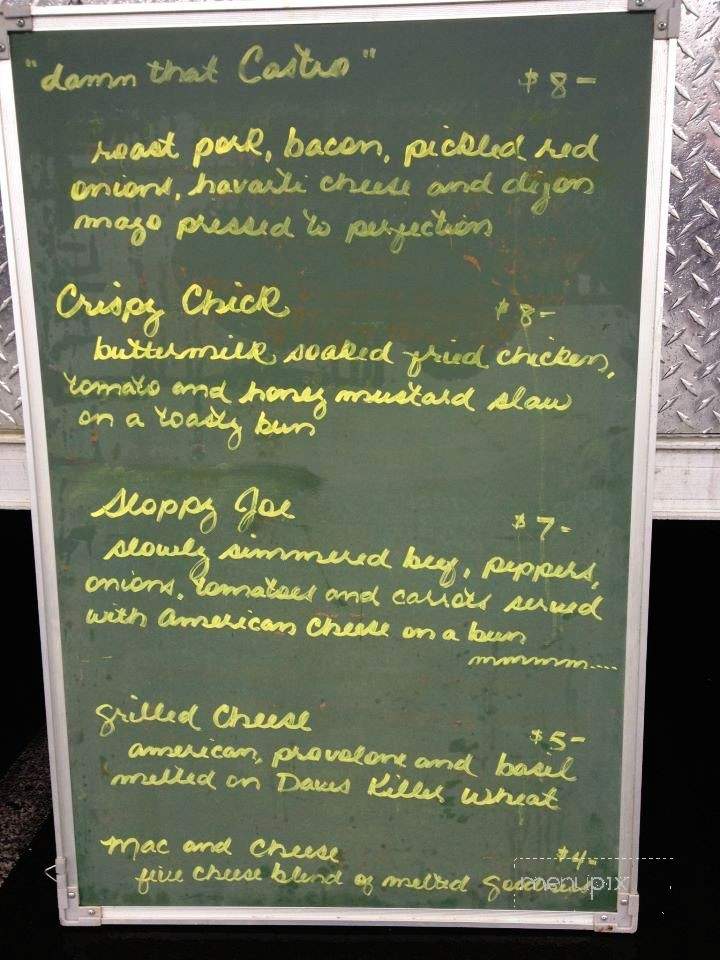 "damn that Castro" $8-
roast pork, bacon, pickled red
onions, havarti cheese and dijon
mayo pressed to perfection
Crispy Chick $8-
buttermilk soaked fried chicken,
tomato and honey mustard slaw
on a toasty bun
Sloppy Joe $7-
slowly simmered beef, peppers,
onions, tomatoes and carrots served
with American cheese on a bun
mmmmm....
grilled Cheese $5-
american, provolone and basil
melted on Daves Killer wheat
mac and cheese $4-
five cheese blend of melted goodness
menupix